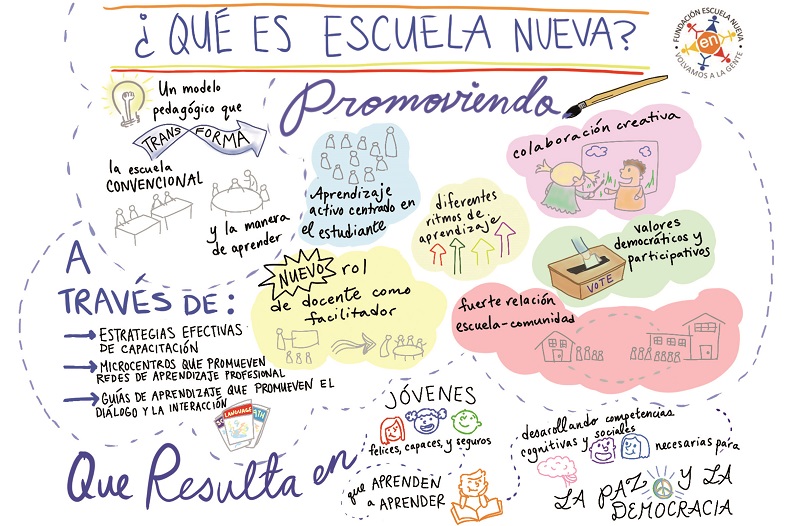 ¿QUÉ ES ESCUELA NUEVA?
FUNDACIÓN ESCUELA NUEVA
en
VOLVAMOS A LA GENTE
Un modelo
pedagógico que
TRANS FORMA
la escuela
CONVENCIONAL
y la manera
de aprender
Promoviendo
Aprendizaje
activo centrado en
el estudiante
diferentes
ritmos de
aprendizaje
colaboración creativa
valores
democráticos y
participativos
VOTE
NUEVO rol
de docente como
facilitador
fuerte relación
escuela-comunidad
A
TRAVÉS DE:
ESTRATEGIAS EFECTIVAS
DE CAPACITACIÓN
MICROCENTROS QUE PROMUEVEN
REDES DE APRENDIZAJE PROFESIONAL
GUÍAS DE APRENDIZAJE QUE PROMUEVEN EL
DIÁLOGO Y LA INTERACCIÓN
LANGUAGE
Que Resulta en
JÓVENES
felices, capaces, y seguros
que APRENDEN
a APRENDER
desarollando competencias
cognitivas y sociales
necesarias para
LA PAZ Y LA
DEMOCRACIA